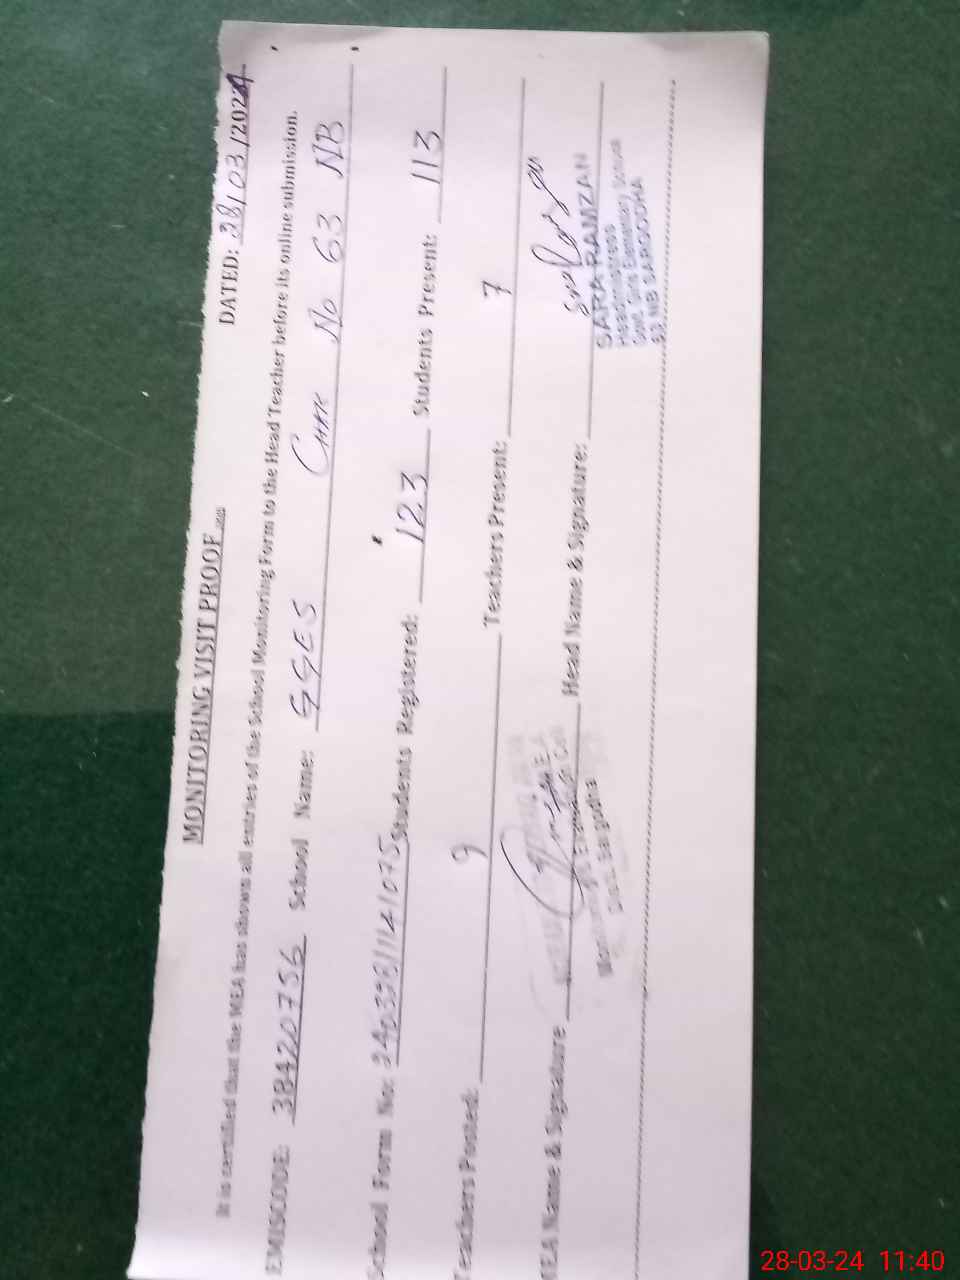 MONITORING VISIT PROOF
DATED: 28/03/2024
It is certified that the MEA has shown all entries of the School Monitoring Form to the Head Teacher before its online submission.
EMISCODE: 38420756 School Name: GGES CHAK No 63 NB
School Form No: Students Registered: 123 Students Present: 113
Teachers Posted: 9 Teachers Present: 7
MEA Name & Signature Head Name & Signature:
SARA RAMZAN
Headmistress
Govt. Girls Elementary School
63 NB SARGODHA
Distt. Sargodha
28-03-24 11:40